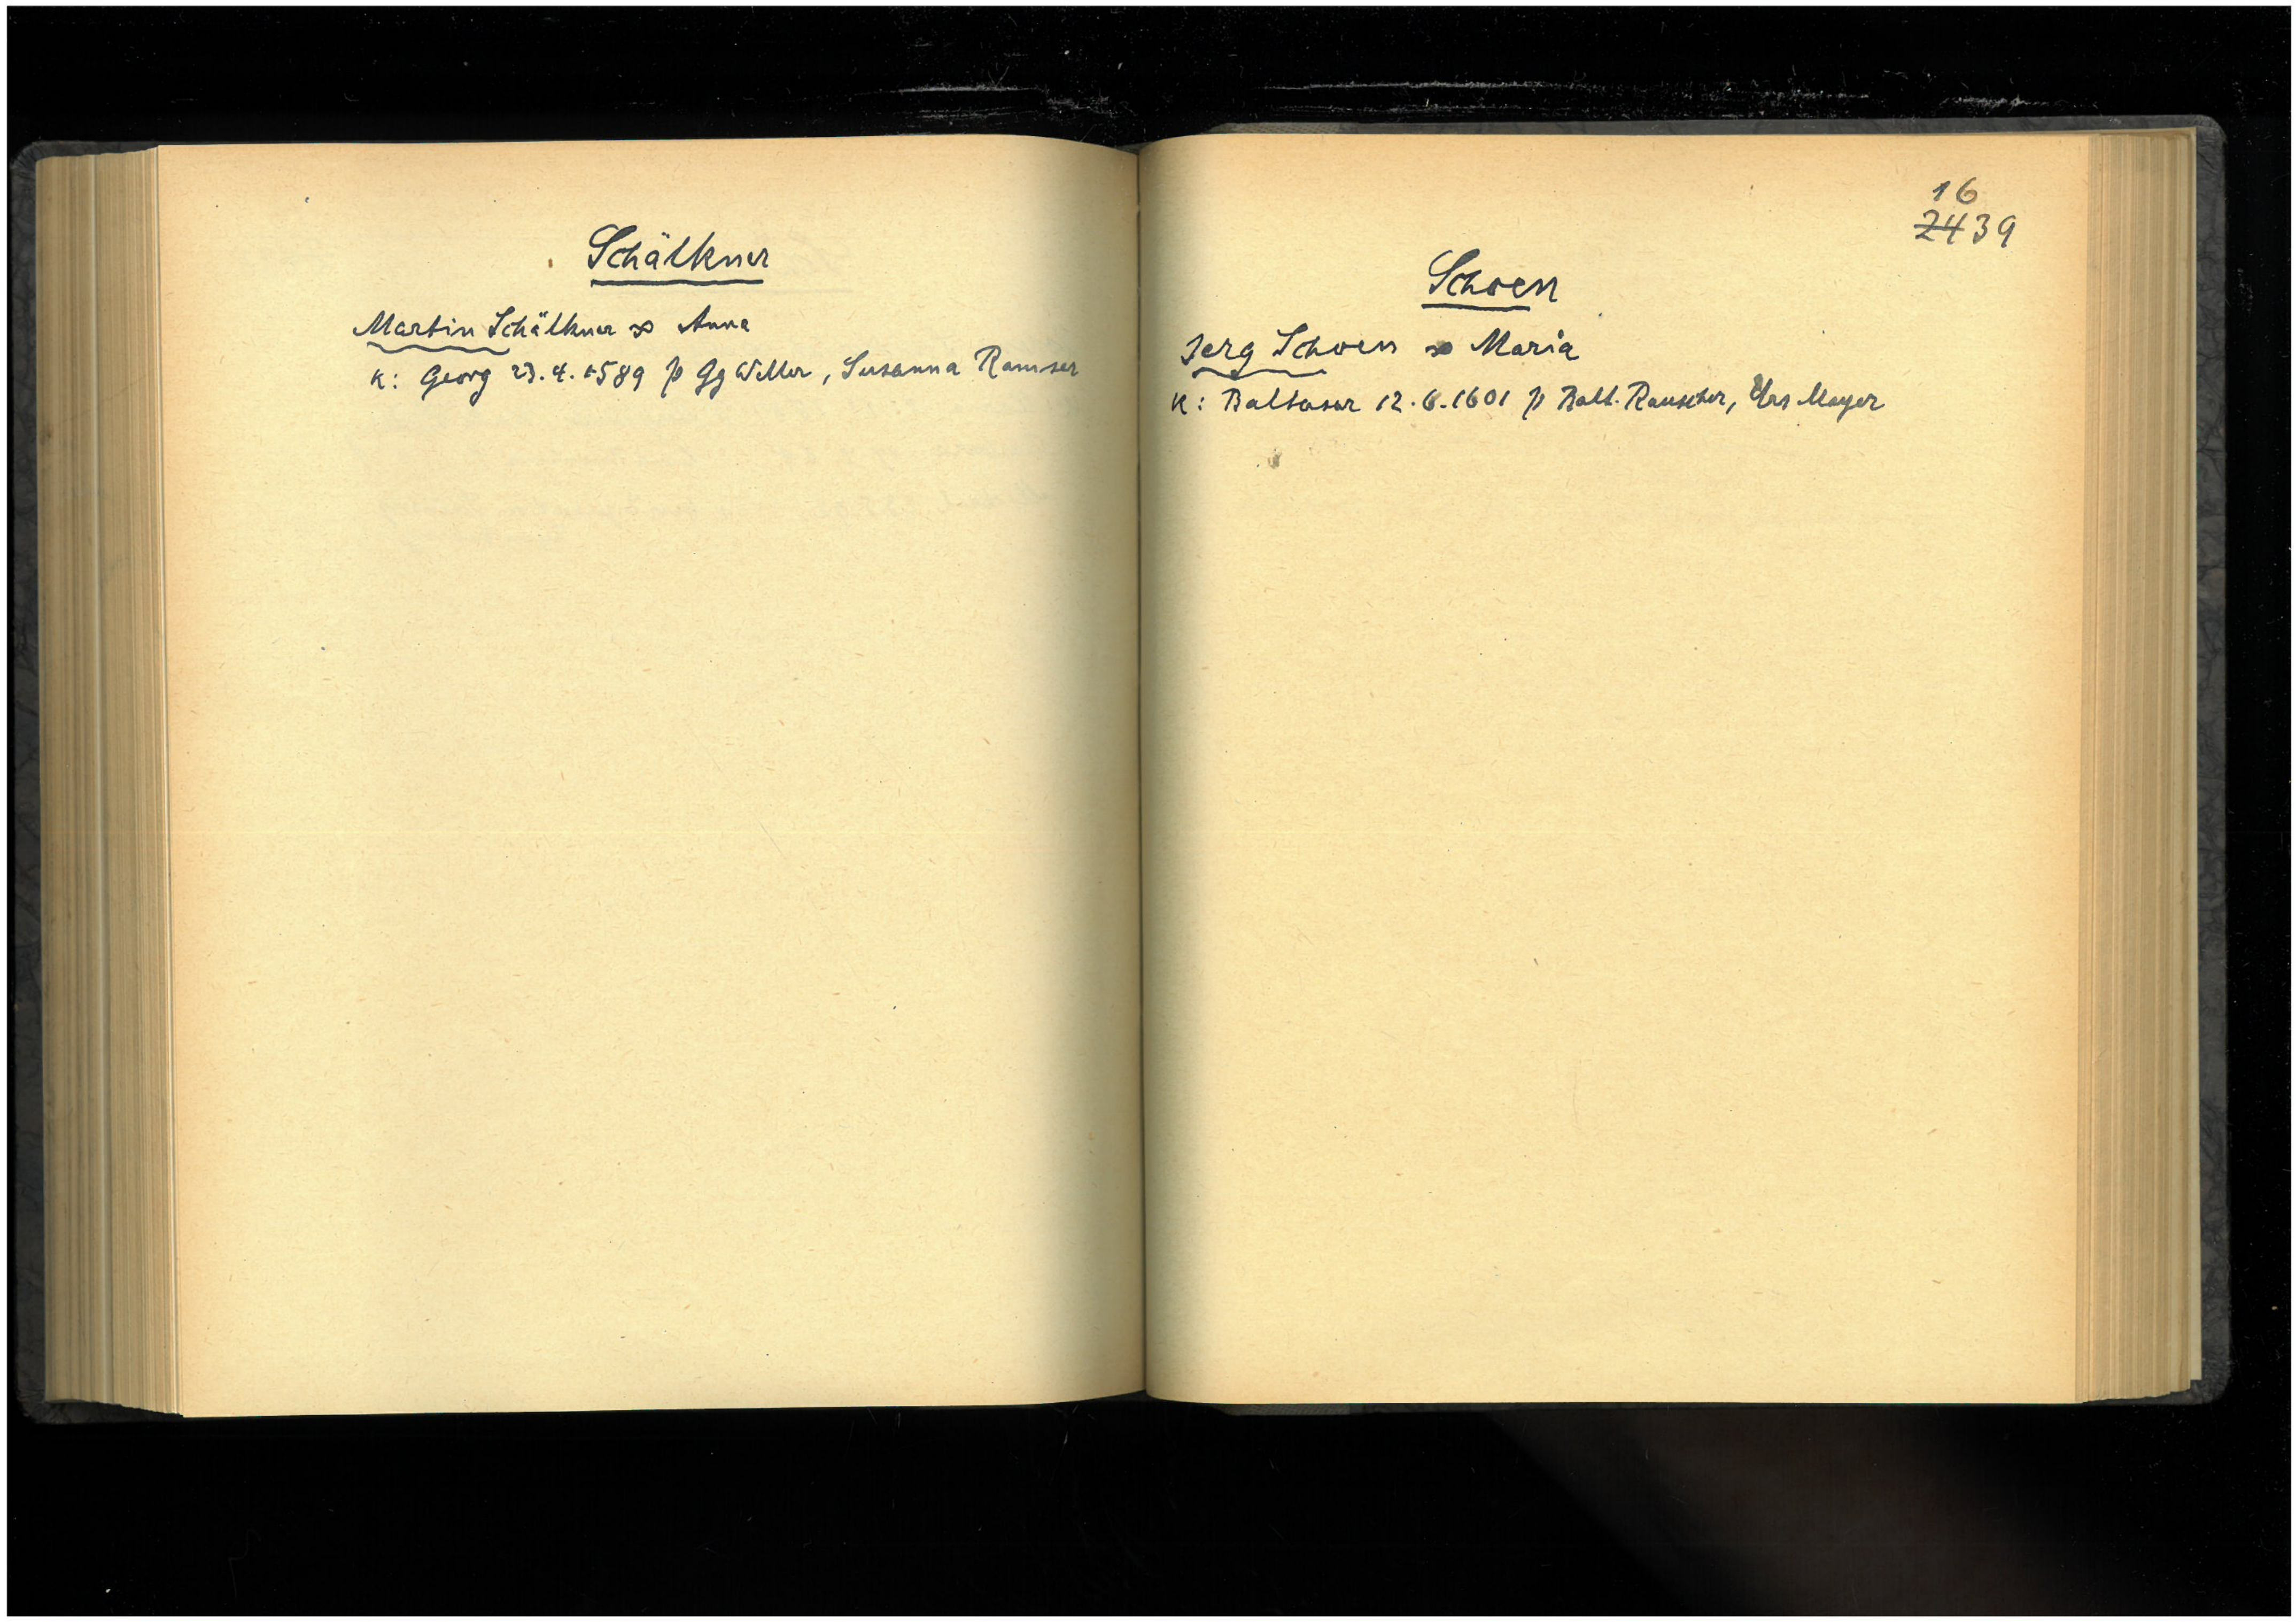 Schälkner
Martin Schälkner ∞ Anna
K: Georg 23.4.1589 p Gg Willer, Susanna Ramser
16
2439
Schoen
Jerg Schoen ∞ Maria
K: Baltasar 12.6.1601 p Balt. Rauscher, Urs Mayer